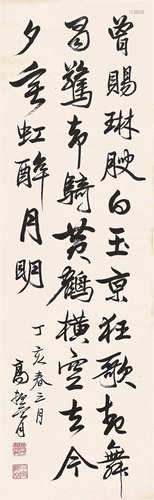 曾賜琳腴白玉京狂歌起舞
驚却騎黃鶴橫空去今
夕垂虹醉月明
丁亥春三月
高